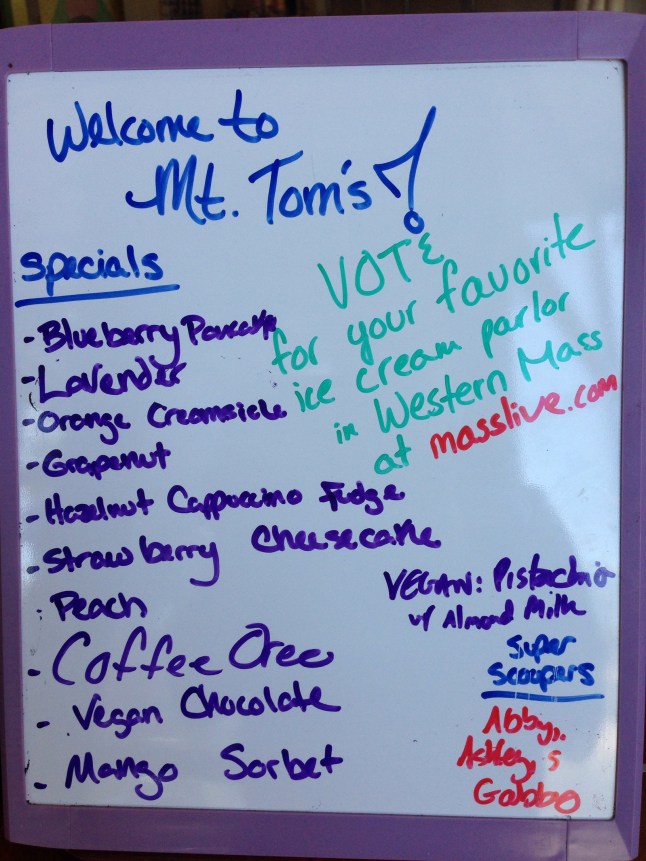 Welcome to
Mt. Tom's!
Specials
- Blueberry Pancake
- Lavender
- Orange Creamsicle
- Grapenut
- Hazelnut Cappuccino Fudge
- Strawberry Cheesecake
- Peach
- Coffee Oreo
- Vegan Chocolate
- Mango Sorbet
VOTE
for your favorite
ice cream parlor
in Western Mass
at masslive.com
VEGAN: Pistachio
w/ Almond Milk
Super
Scoopers
Abby,
Ashley,